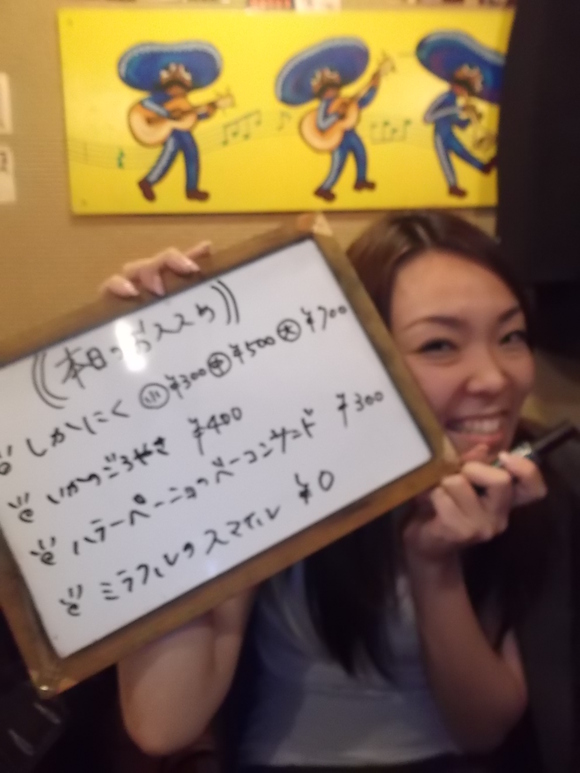 本日のおススめ
しかにく 小 ¥300 中 ¥500 大 ¥700
いかのごろやき ¥400
ハラーペーニョのベーコンサンド ¥300
ミラクルのスマイル ¥0